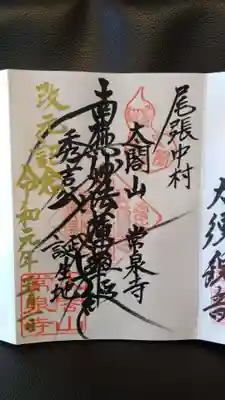 尾張中村
太閤山
常泉寺
南無妙法蓮華経
秀吉公
誕生地
改元記念
令和元年五月一日
大須観音